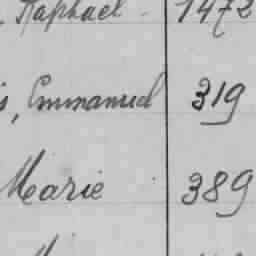 , Raphael 1472
s, Emmanuel 319
Marie 389